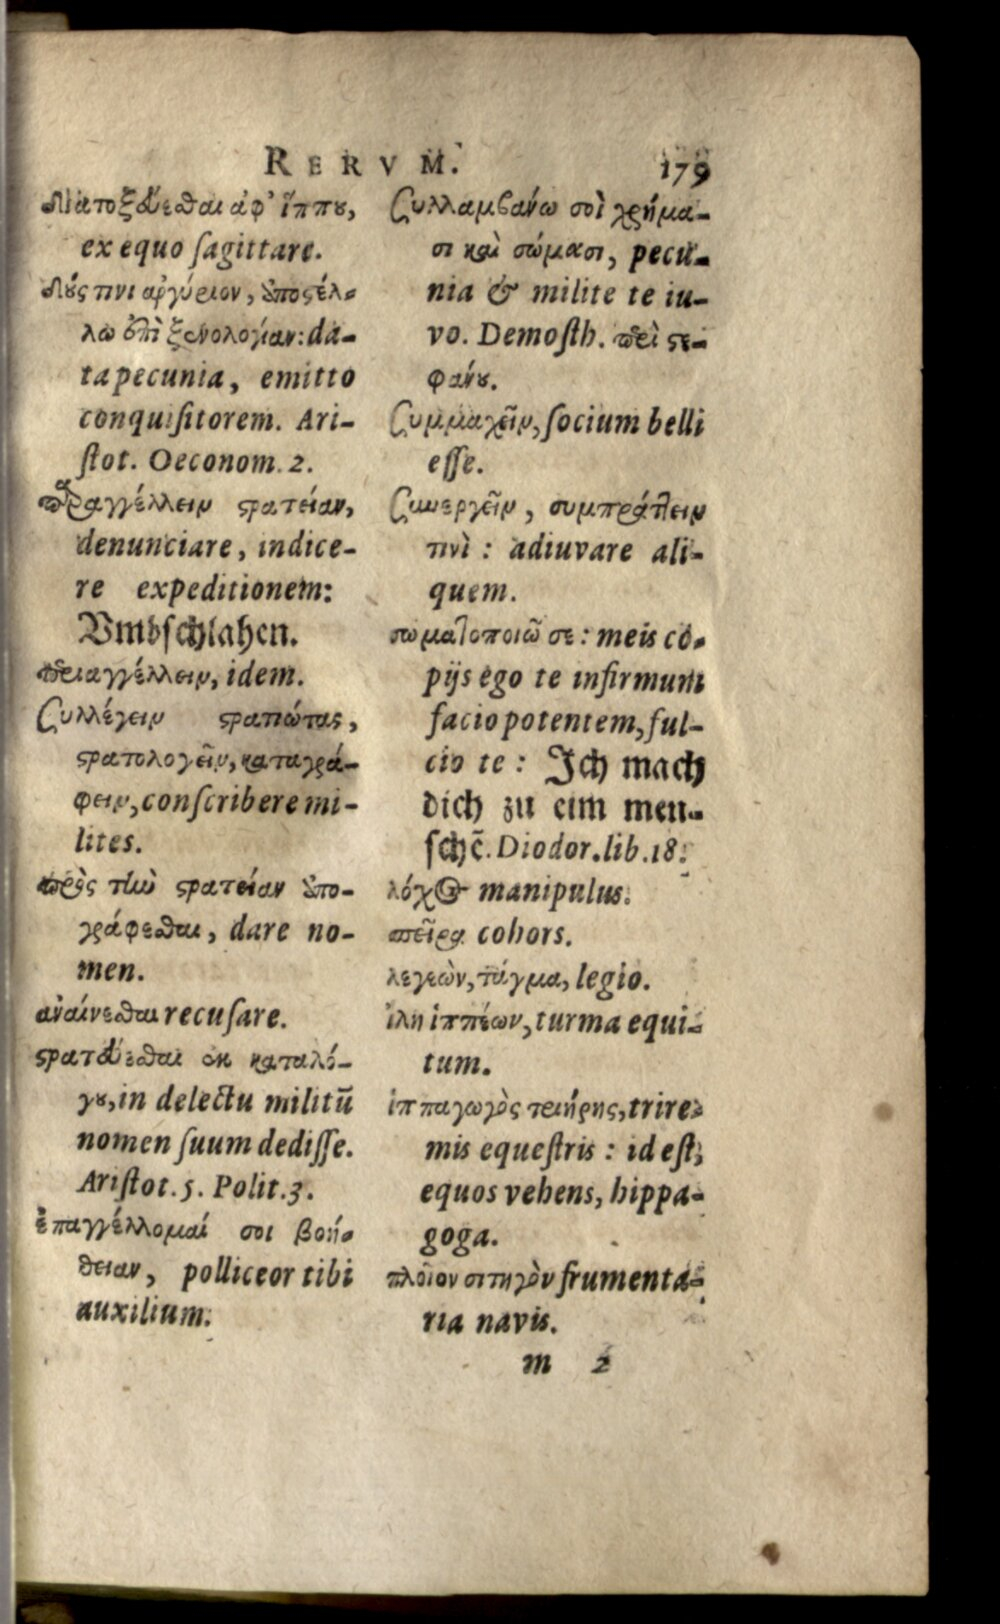 RERVM. 179
Διατοξεύεσθαι ἀφ' ἵππου,
ex equo ſagittare.
Δούς τινι ἀργύριον, ἀποστέλ-
λω ἐπὶ ξενολογίαν: da-
ta pecunia, emitto
conquiſitorem. Ari-
ſtot. Oeconom. 2.
παραγγέλλειν στρατείαν,
denunciare, indice-
re expeditionem:
Vmbſchlahen.
περιαγγέλλειν, idem.
Συλλέγειν στρατιώτας,
στρατολογεῖν, καταγρά-
φειν, conſcribere mi-
lites.
πρὸς τὴν στρατείαν ἀπο-
γράφεσθαι, dare no-
men.
ἀναίνεσθαι recuſare.
στρατεύεσθαι ἐκ καταλό-
γου, in delectu militū
nomen ſuum dediſſe.
Ariſtot. 5. Polit. 3.
ἐπαγγέλλομαί σοι βοή-
θειαν, polliceor tibi
auxilium.
Συλλαμβάνω σοὶ χρήμα-
σι καὶ σώμασι, pecu-
nia & milite te iu-
vo. Demoſth. περὶ στε-
φάνου.
Συμμαχεῖν, ſocium belli
eſſe.
Συνεργεῖν, συμπράττειν
τινὶ: adiuvare ali-
quem.
σωματοποιῶ σε: meis co-
pijs ego te infirmum
facio potentem, ful-
cio te: Ich mach
dich zu eim men-
ſchē. Diodor. lib. 18.
λόχος manipulus.
σπεῖρα cohors.
λεγεὼν, τάγμα, legio.
ἴλη ἱππέων, turma equi-
tum.
ἱππαγωγὸς τριήρης, trire-
mis equeſtris: id eſt,
equos vehens, hippa-
goga.
πλοῖον σιτηγὸν frumenta-
ria navis.
m 2